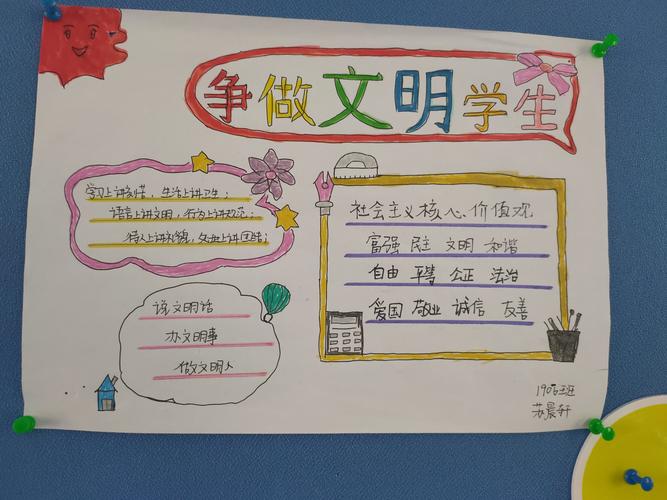 争做文明学生
学习上讲刻苦，生活上讲卫生；
语言上讲文明，行为上讲规范；
待人上讲礼貌，交往上讲团结；
社会主义核心价值观
富强 民主 文明 和谐
自由 平等 公正 法治
爱国 敬业 诚信 友善
说文明话
办文明事
做文明人
1906班
苏晨轩